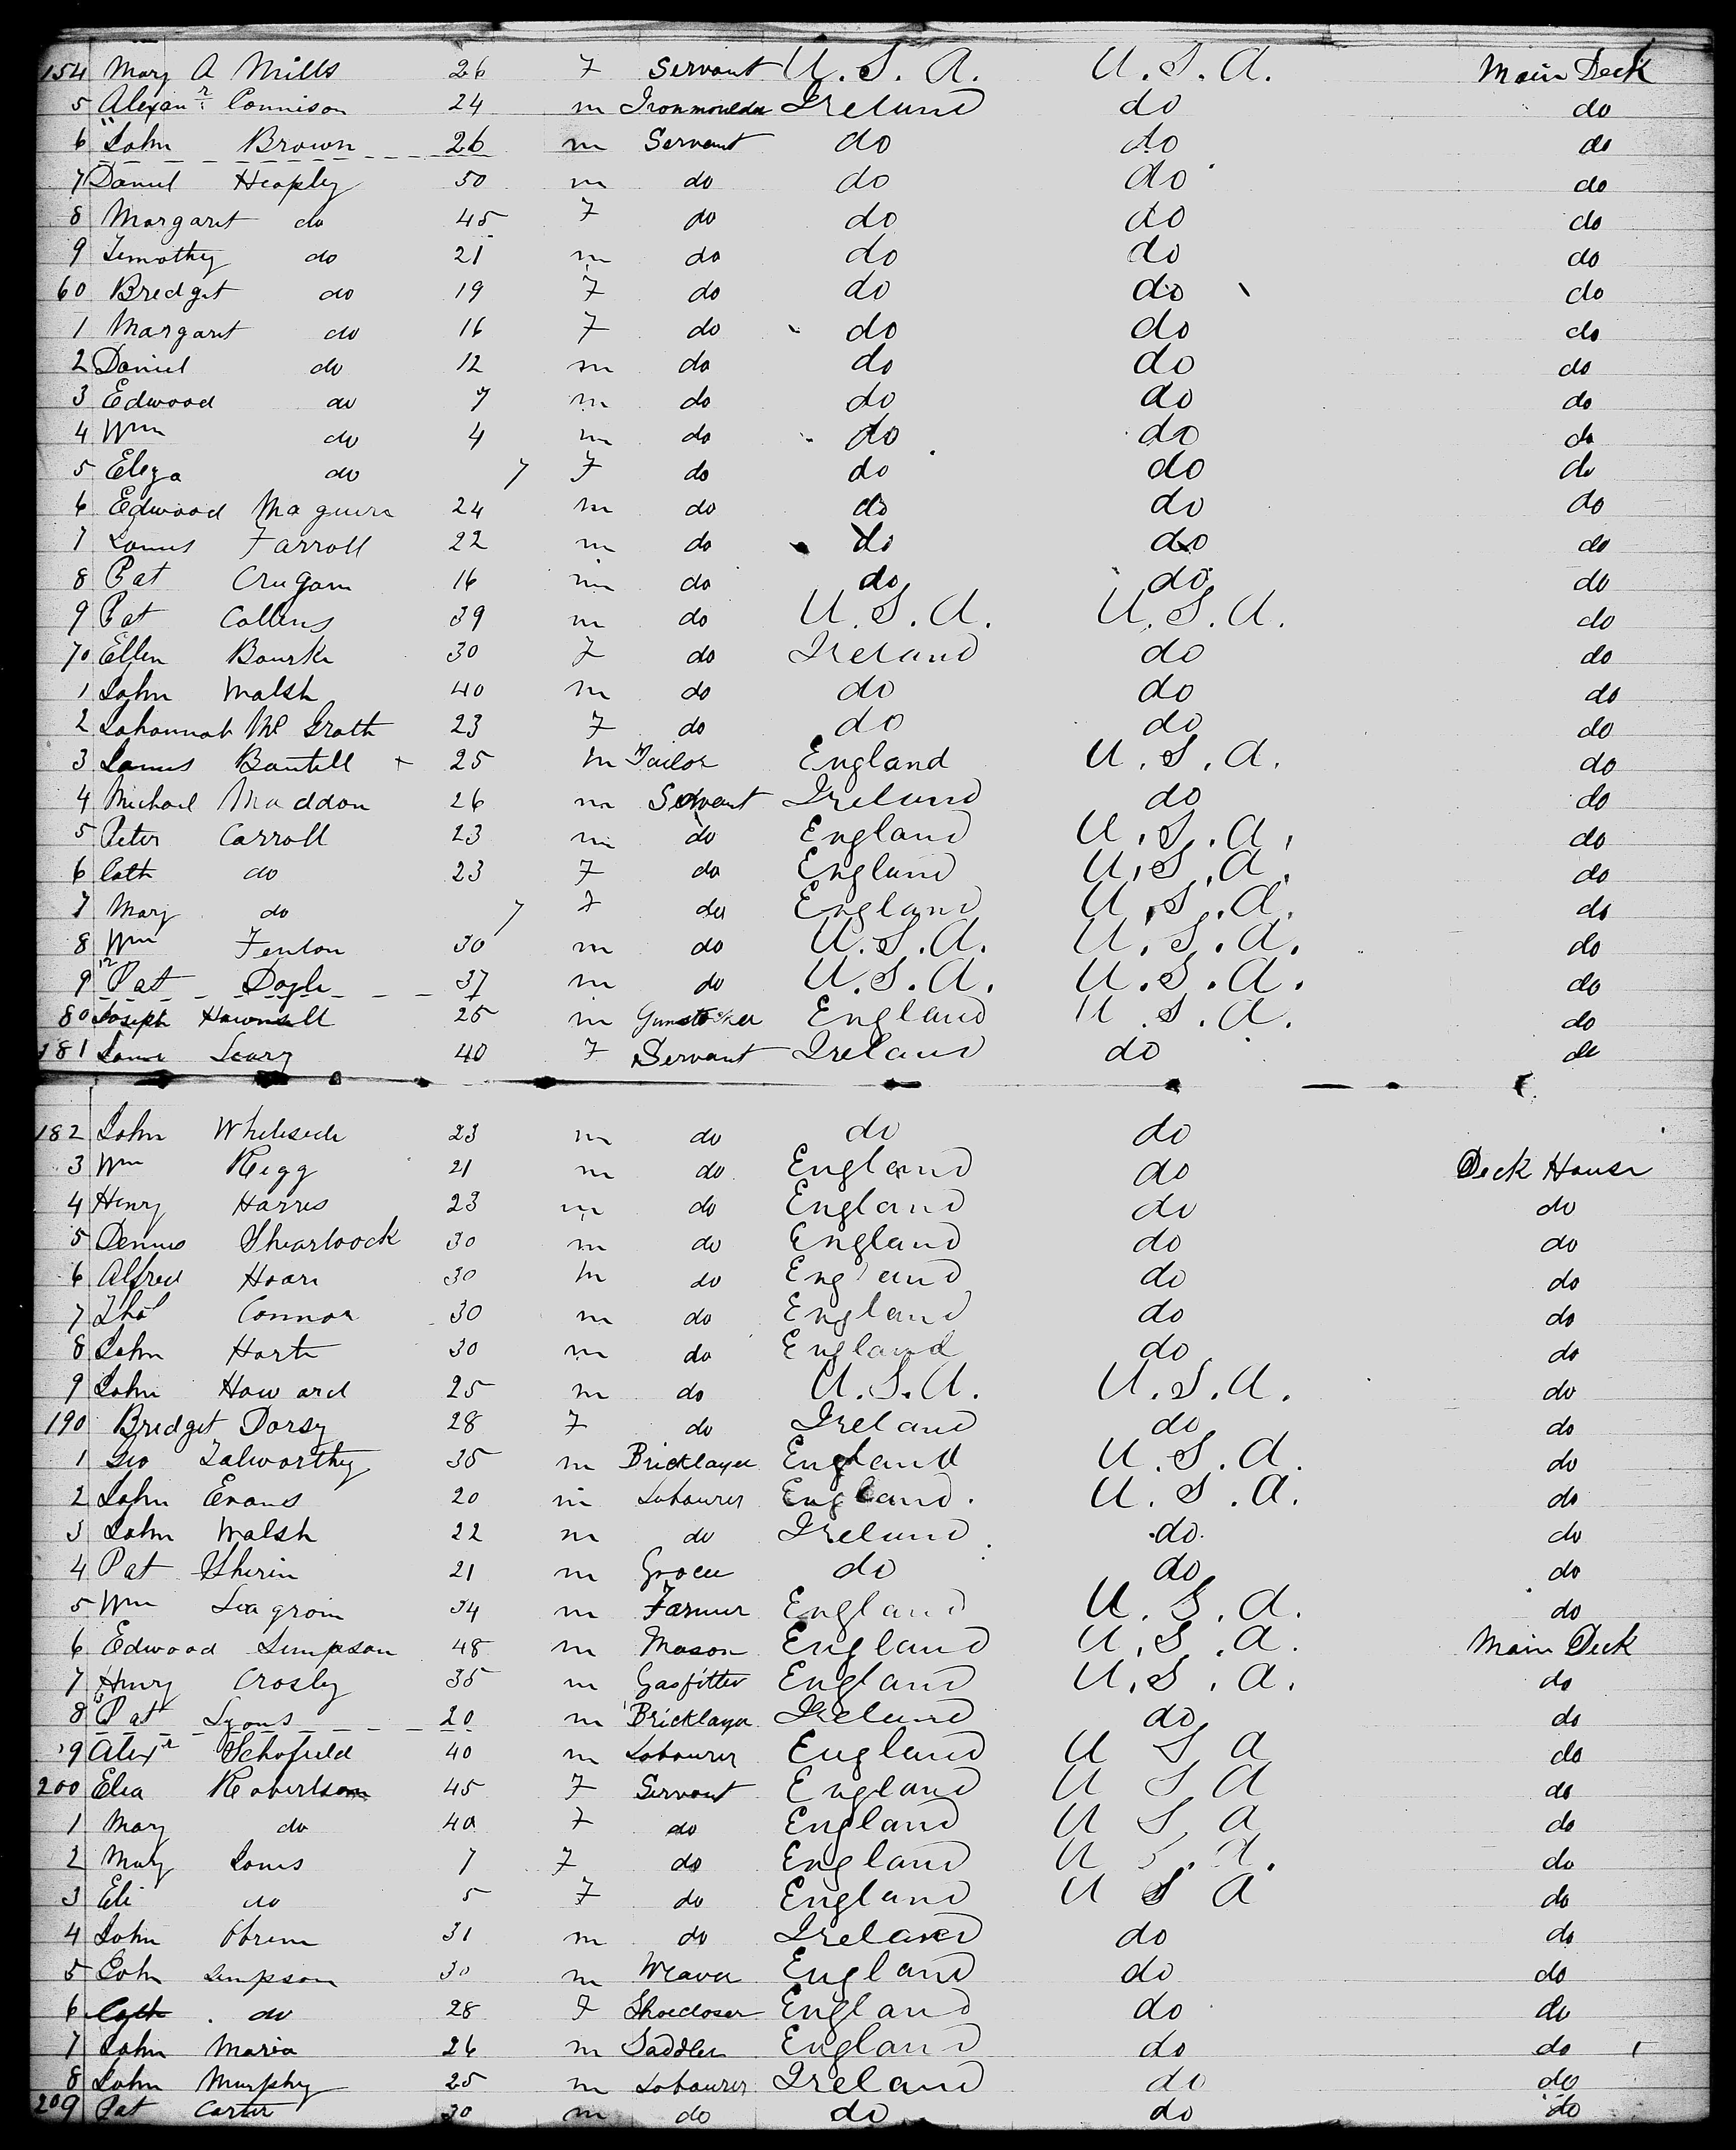 154 Mary A Mills 26 F Servant U.S.A. U.S.A. Main Deck
5 Alexanr Connison 24 m Ironmoulder Ireland do do
6 John Brown 26 m Servant do do do
7 Daniel Heaply 50 m do do do do
8 Margaret do 45 F do do do do
9 Timothy do 21 m do do do do
60 Bredget do 19 F do do do do
1 Margaret do 16 F do do do do
2 Daniel do 12 m do do do do
3 Edwood do 7 m do do do do
4 Wm do 4 m do do do do
5 Eliza do 7 F do do do do
6 Edwood Maguire 24 m do do do do
7 James Farroll 22 m do do do do
8 Pat Crugan 16 m do do do do
9 Pat Collins 39 m do U.S.A. U.S.A. do
70 Ellen Bourke 30 F do Ireland do do
1 John Walsh 40 m do do do do
2 Johannah Mc Grath 23 F do do do do
3 James Bantell + 25 m Tailor England U.S.A. do
4 Michael Maddon 26 m Servant Ireland do do
5 Peter Carroll 23 m do England U.S.A. do
6 Cath do 23 F do England U.S.A. do
7 Mary do 7 F do England U.S.A. do
8 Wm Fenton 30 m do U.S.A. U.S.A. do
9 Pat Doyle 37 m do U.S.A. U.S.A. do
80 Joseph Hawnsell 25 m Gunstocker England U.S.A. do
181 Jane Leary 40 F Servant Ireland do do
182 John Whiteside 23 m do do do
3 Wm Rigg 21 m do England do Deck House
4 Henry Harris 23 m do England do do
5 Dennis Shearloock 30 m do England do do
6 Alfred Hoare 30 m do England do do
7 Thos Connor 30 m do England do do
8 John Harte 30 m do England do do
9 John Howard 25 m do U.S.A. U.S.A. do
190 Bredget Dorsy 28 F do Ireland do do
1 Geo Talworthy 35 m Bricklayer England U.S.A. do
2 John Evans 20 m Labourer England. U.S.A. do
3 John Walsh 22 m do Ireland do do
4 Pat Sherin 21 m Grocer do do do
5 Wm Seagrom 34 m Farmer England U.S.A. do
6 Edwood Simpson 48 m Mason England U.S.A. Main Deck
7 Henry Crosley 35 m Gasfitter England U.S.A. do
8 Pat Lyons 20 m Bricklayer Ireland do do
9 Alexr Schofield 40 m Labourer England U S A do
200 Elea Robertson 45 F Servant England U S A do
1 Mary do 40 F do England U S A do
2 Mary Jones 7 F do England U S A. do
3 Eli do 5 F do England U S A do
4 John Obrien 31 m do Ireland do do
5 John Simpson 30 m Weaver England do do
6 Cath do 28 F Shoecloser England do do
7 John Maria 26 m Saddler England do do
8 John Murphy 25 m Labourer Ireland do do
209 Pat Carter 30 m do do do do